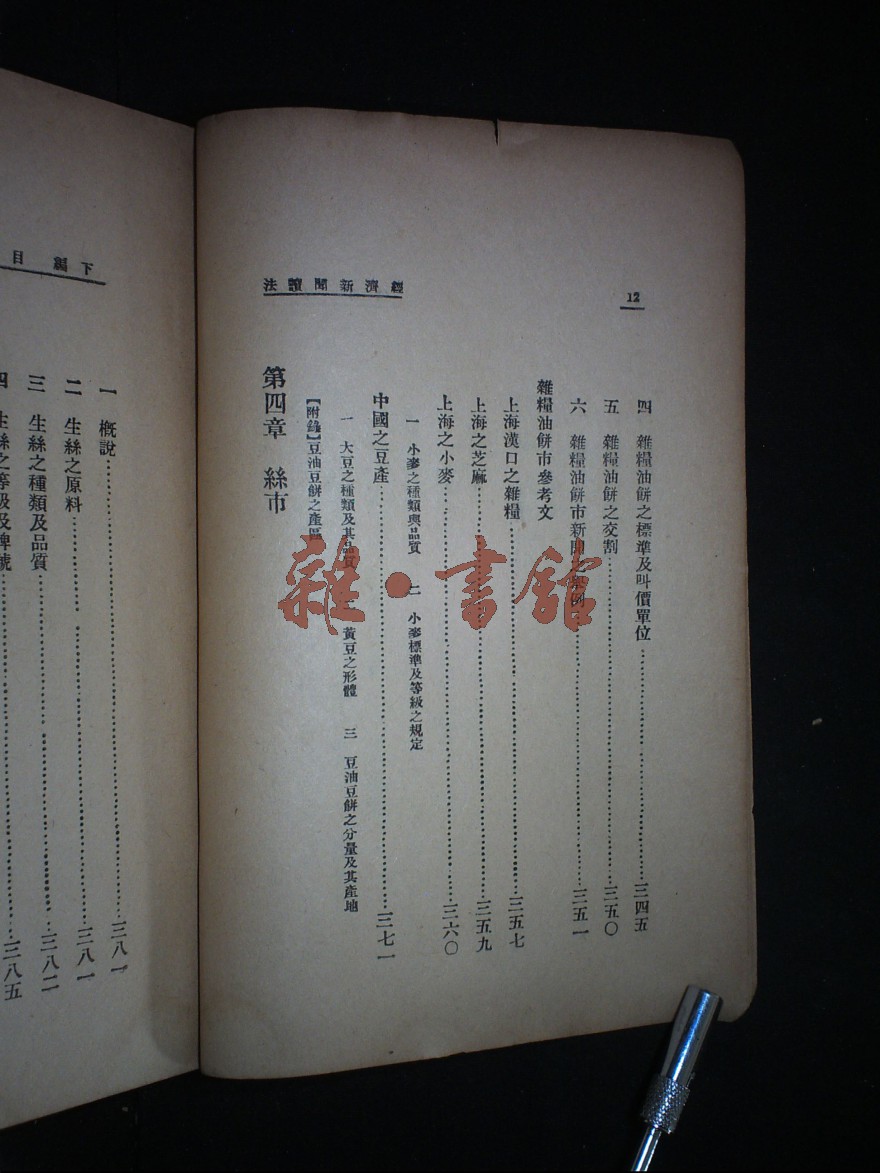 12
經濟新聞讀法
四 雜糧油餅之標準及叫價單位……三四五
五 雜糧油餅之交割……三五〇
六 雜糧油餅市新聞之舉例……三五一
雜糧油餅市參考文
上海漢口之雜糧……三五七
上海之芝麻……三五九
上海之小麥……三六〇
一 小麥之種類與品質 二 小麥標準及等級之規定
中國之豆產……三七一
一 大豆之種類及其品質 二 黃豆之形體 三 豆油豆餅之分量及其產地
【附錄】豆油豆餅之產區
第四章 絲市
下編 目
一 概說……三八一
二 生絲之原料……三八一
三 生絲之種類及品質……三八二
四 生絲之等級及牌號……三八五
雜·書館